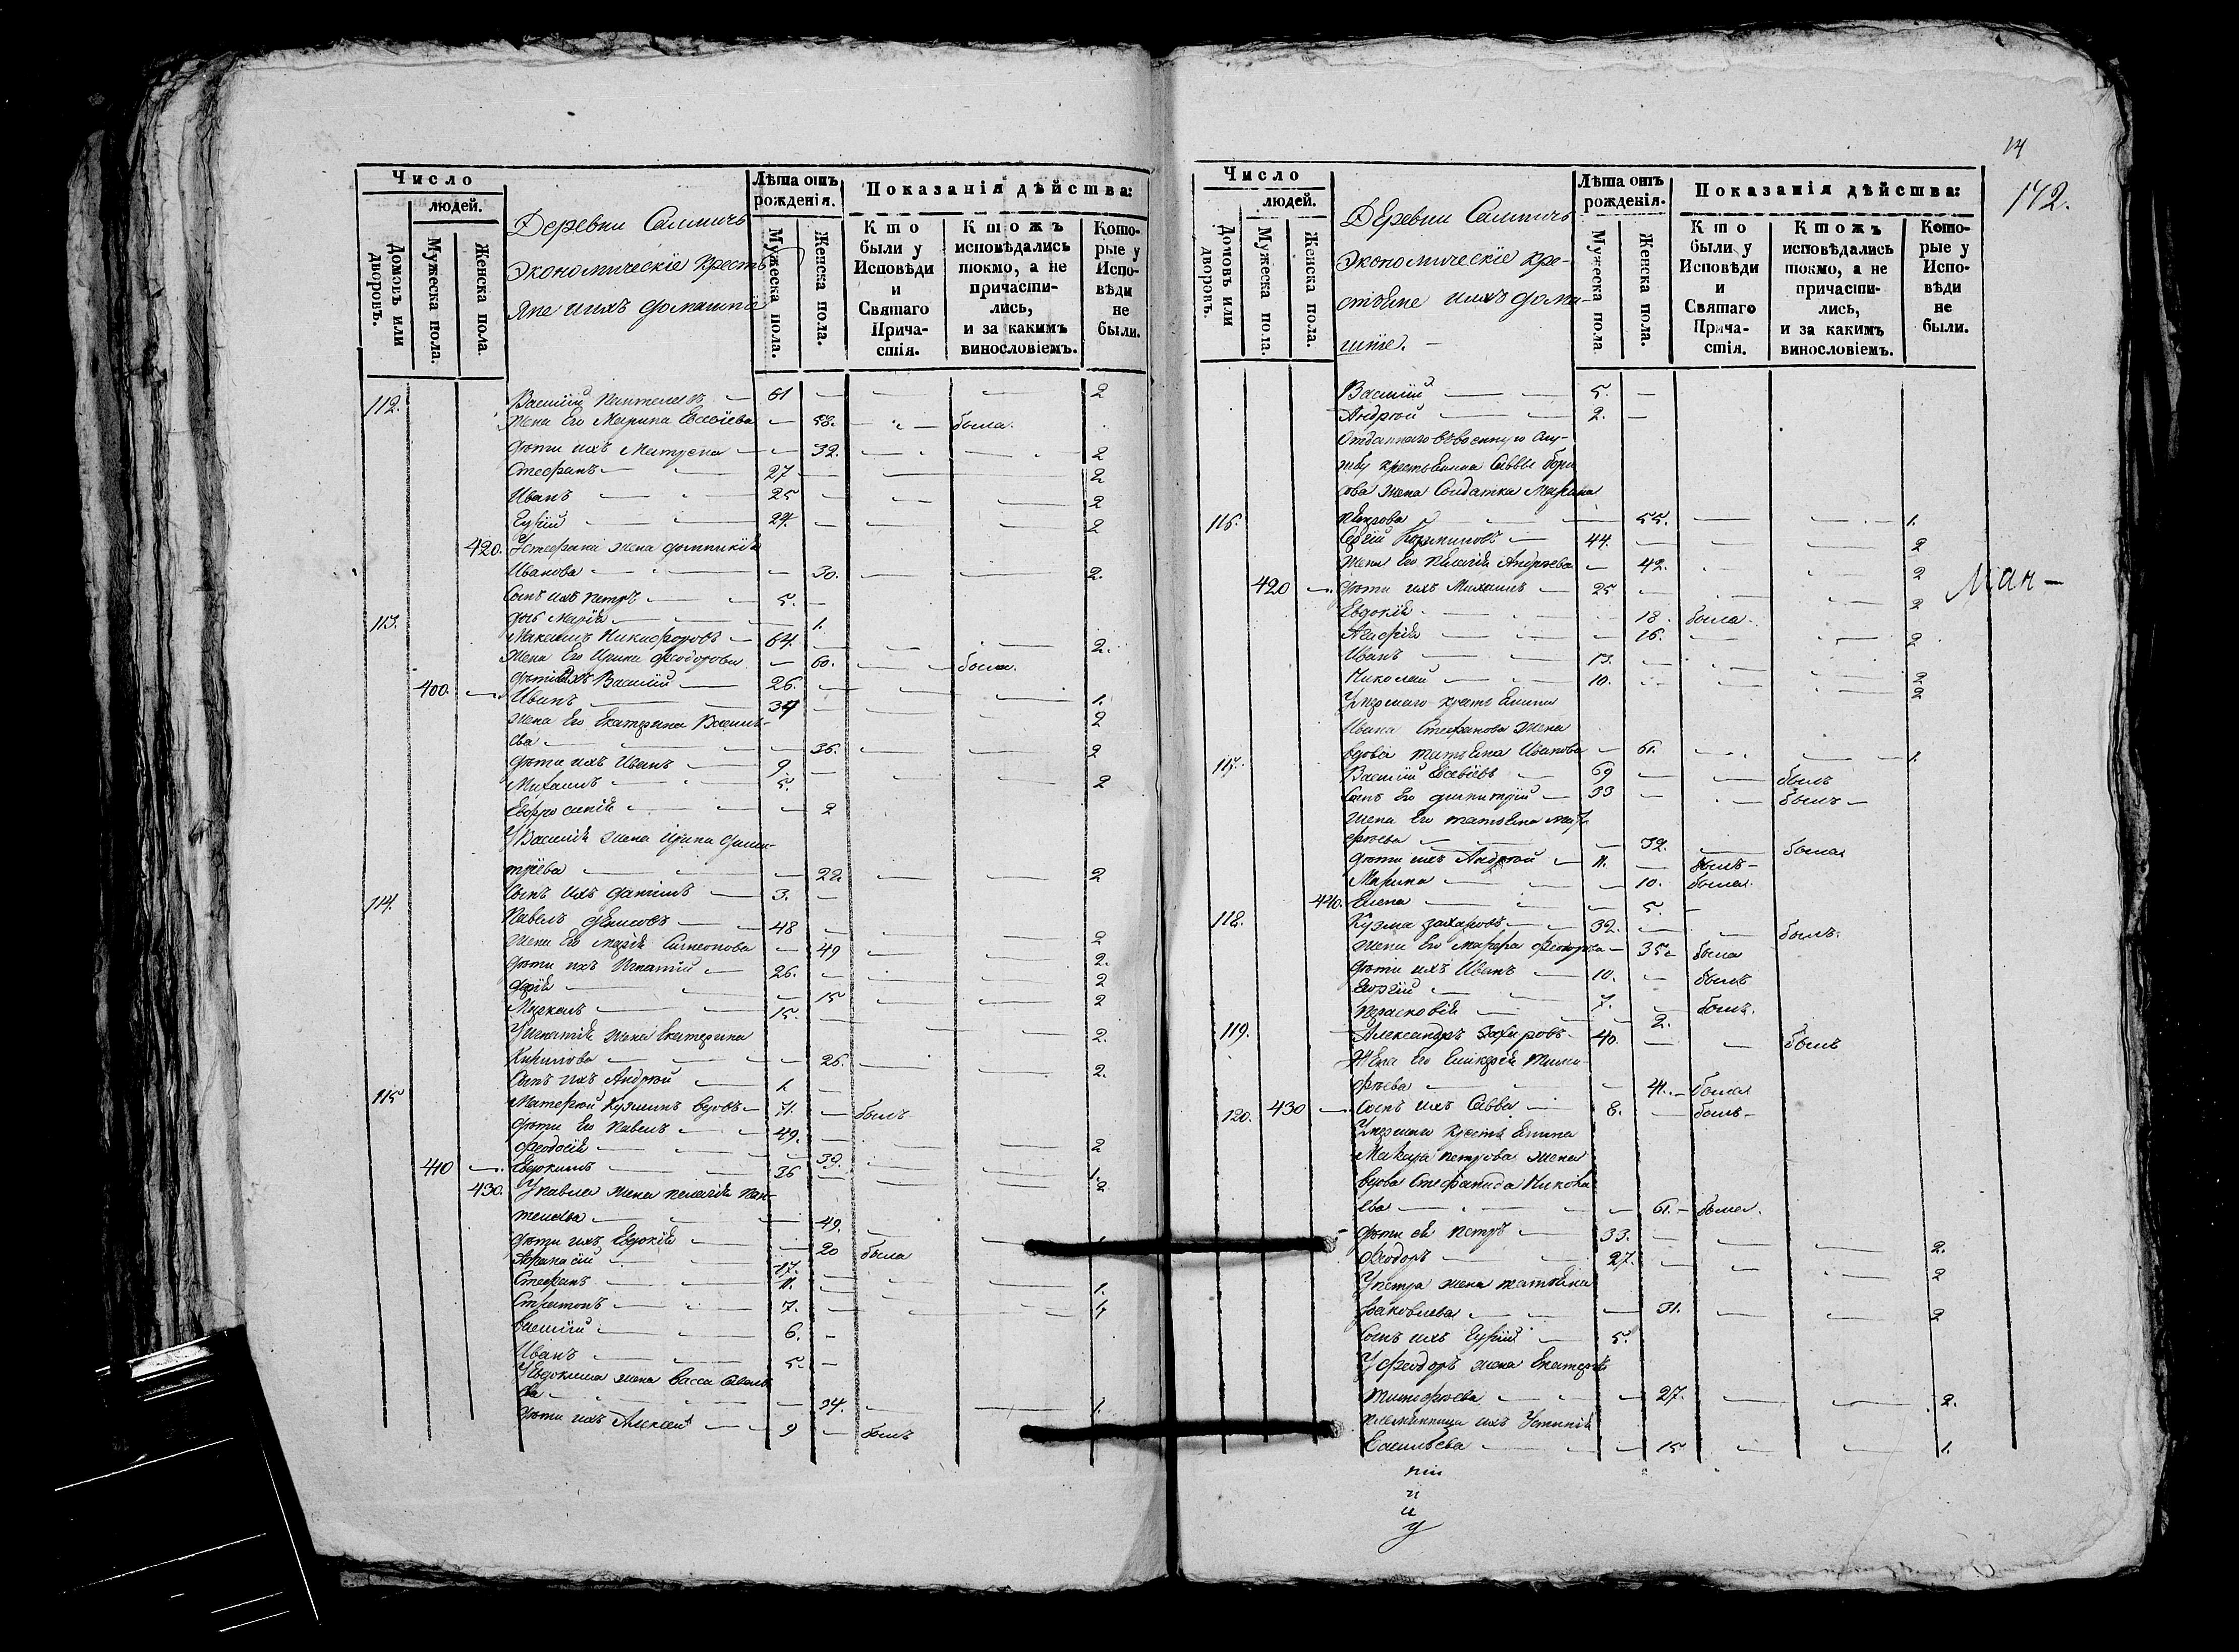 Число
людей.
Домовъ или дворовъ.
Мужеска пола.
Женска пола.
Деревни
Экономическіе кресть
яне и ихъ домашніе
Лѣта отъ рожденія.
Мужеска пола.
Женска пола.
Показанія дѣйства:
Кто были у Исповѣди и Святаго Причастія.
Ктожъ исповѣдались токмо, а не причастились, и за какимъ винословіемъ.
Которые у Исповѣди не были.
112. Василій Пантелеевъ — 61 — — — 2
Жена Его Марина Евсеіева — 58. — — была.
дѣти ихъ Матрена — 32. — — 2
Стефанъ — 27 — — — 2
Иванъ — 25 — — — 2
Гурій — 24. — — — 2
420. У Стефана жена
Иванова — 30. — — 2.
Сынъ ихъ Петръ — 5. —
дочь Марія — 1.
113. Максимъ Никифоровъ — 64. — — 2.
Жена Его Ирина Феодорова — 60. — — была.
дѣти ихъ Василій — 26. — — — 1.
400. — Иванъ — 34 — — — 2
жена Его Екатерина Василь-
ева — 36. — — 2
дѣти ихъ Иванъ — 9 — — — 2
Михаилъ — 5.
Евфросинія — 2
У Василія жена Ирина Дими-
тріева — 22 — — 2
Сынъ ихъ Даніилъ — 3. —
114. Павелъ Денисовъ — 48 — — — 2
Жена Его Марія Симеонова — 49 — — 2.
дѣти ихъ Игнатій — 26. — — — 2
Дарія — 15 — — 2
15. — — — 2.
У Игнатія жена Екатерина
Кирилова — 26. — — 2.
Сынъ ихъ Андрей — 1. —
115 Матфей Кузминъ вдовъ — 71. — былъ
дѣти Его Павелъ — 49. — — — 2
Феодосія — 39. — — 1.
410 — Евдокимъ — 36 — — — 2
430. У Павла жена Пелагія Пан-
телеева — 49. — — 1
дѣти ихъ Евдокія — 20 была
Афанасій — 17. — — — 1.
Стефанъ — 11. — — — 1.
7. —
Василій — 6. —
Иванъ — 5. —
У Евдокима жена Васса Савель
ева — 34. — — 1.
дѣти ихъ Алексѣй — 9 — былъ
14
142.
Число
людей.
Домовъ или дворовъ.
Мужеска пола.
Женска пола.
Деревни
Экономическіе кре-
стьяне и ихъ дома-
шніе. —
Лѣта отъ рожденія.
Мужеска пола
Женска пола.
Показанія дѣйства:
Кто были у Исповѣди и Святаго Причастія.
Ктожъ исповѣдались токмо, а не причастились, и за какимъ винословіемъ.
Которые у Исповѣди не были.
Василій — 5. —
Андрей — 2. —
Отданнаго въ военную слу-
жбу крестьянина Саввы Бори
сова жена Солдатка Марина
116. Петрова — 55. — — 1.
Сергій — 44. — — — 2
Жена Его Пелагія Андреева — 42. — — 2
420 — дѣти ихъ Михаилъ — 25 — — — 2
Евдокія — 18. была.
Агафія — 16. — — 2
Иванъ — 13. — — — 2
Николай — 10. — — — 2
Умершаго крестьянина
Ивана Стефанова жена
вдова Татьяна Иванова — 61. — — 1.
117. Василій Евсевіевъ — 69 — — былъ
Сынъ Его Димитрій — 33 — — былъ —
жена Его Татьяна Мат
фѣева — 32. — была
дѣти ихъ Андрей — 11. — былъ —
Марина — 10. была.
440. Елена — 5. —
118. Кузма Захаровъ — 32. — — былъ.
жена Его Марфа Феодорова — 35 — была
дѣти ихъ Иванъ — 10. — былъ
Георгій — 7. — былъ.
Парасковія — 2.
119. Александръ Захаровъ — 40. — — былъ
Жена Его Гликерія Тимо-
фѣева — 41. — была
120. 430 — Сынъ ихъ Савва — 8. — былъ —
Умершаго крестьянина
Макара Петрова жена
вдова Стефанида Никола
ева — 61. — была.
дѣти ея Петръ — 33. — — — 2.
Феодоръ — 27. — — — 2
У Петра жена Татьяна
Яковлева — 31. — — 2
Сынъ ихъ Гурій — 5.
У Феодора жена Екатерина
Тимофѣева — 27. — — 2.
племянница ихъ Устинія
Васильева — 15 — — 1.